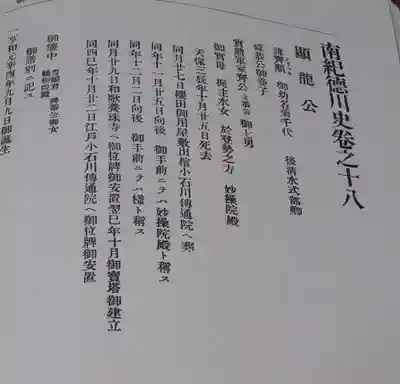 南紀德川史卷之十八
顯龍公
諱齊順 御幼名菊千代 後淸水式部卿
舜恭公御養子
實將軍家齊公 文恭公 御七男
御實母 梶主水女 於登勢之方 妙操院殿
天保三辰年十月廿五日死去
同月廿七日櫻田御用屋敷出棺小石川傳通院ヘ葬
同年十一月廿五日向後 御手前ニテハ妙操院殿ト稱ス
同年十二月二日向後 御手前ニテハ樣ト稱ス
同月廿九日和歌養珠寺ヘ御位牌御安置翌巳年十月御寶塔御建立
同四巳年十月廿二日江戶小石川傳通院ヘ御位牌御安置
御簾中 豊姬君 舜恭公御女
御譜別ニ記ス
一享和元辛酉年九月九日御誕生